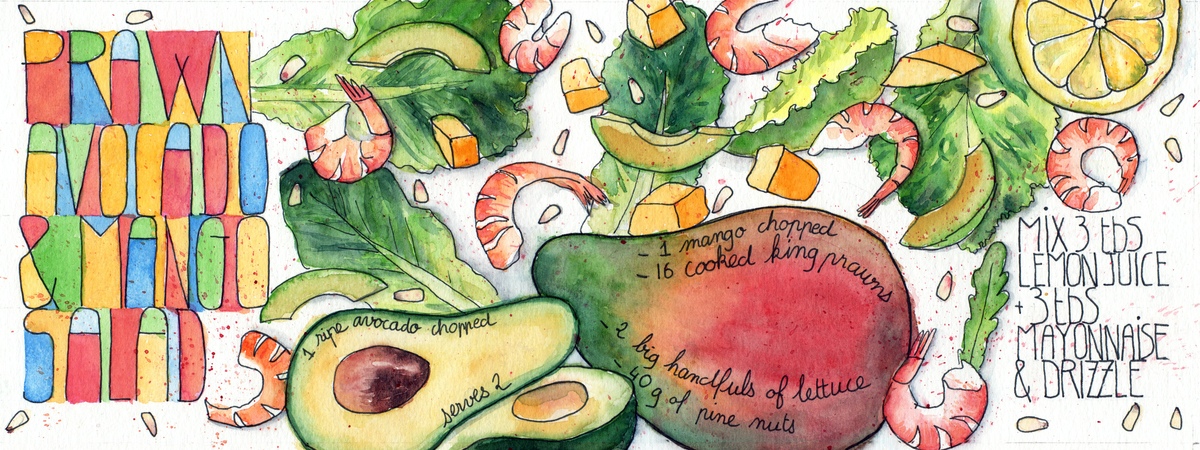 PRAWN
AVOCADO
& MANGO
SALAD
- 1 mango chopped
- 16 cooked king prawns
- 2 big handfuls of lettuce
- 40g of pine nuts
1 ripe avocado chopped
serves 2
MIX 3 tbS
LEMON JUICE
+ 3 tbS
MAYONNAiSE
& DRIZZLE